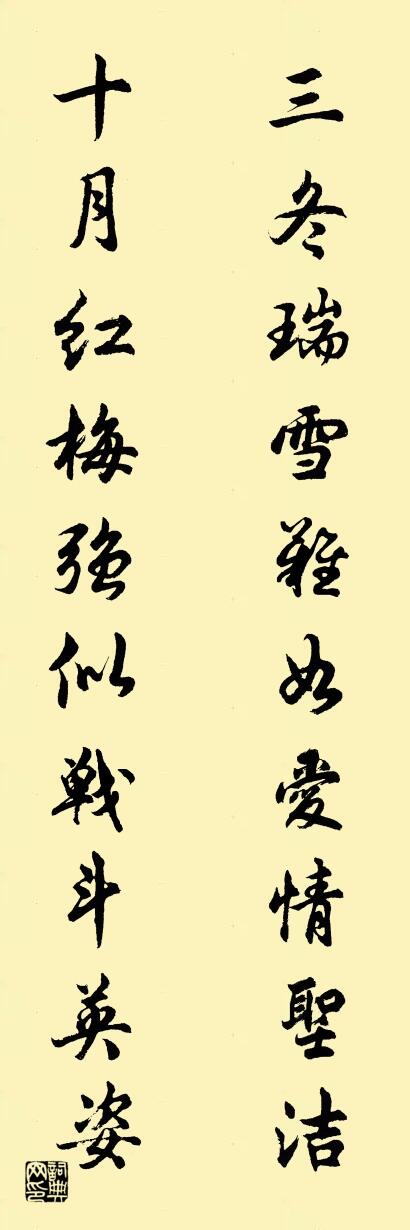 三冬瑞雪難如愛情聖洁
十月红梅强似戦斗英姿
詞典网印